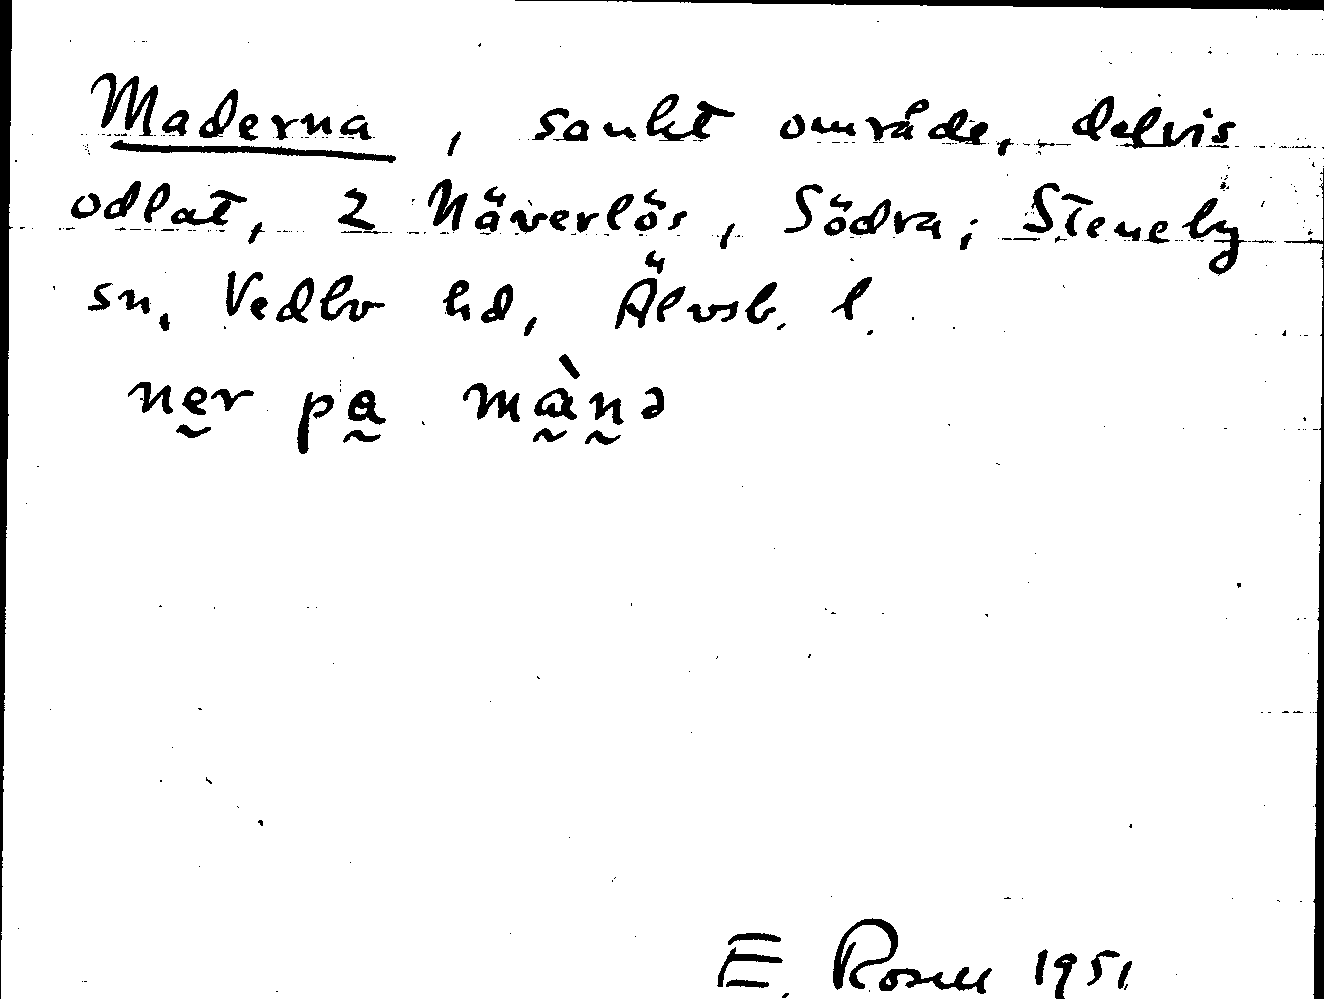 Maderna, sankt område, delvis
odlat, 2 Näverlös, Södra; Steneby
sn, Vedbo hd, Älvsb. l.
ner pa màna
E. Rosell 1951